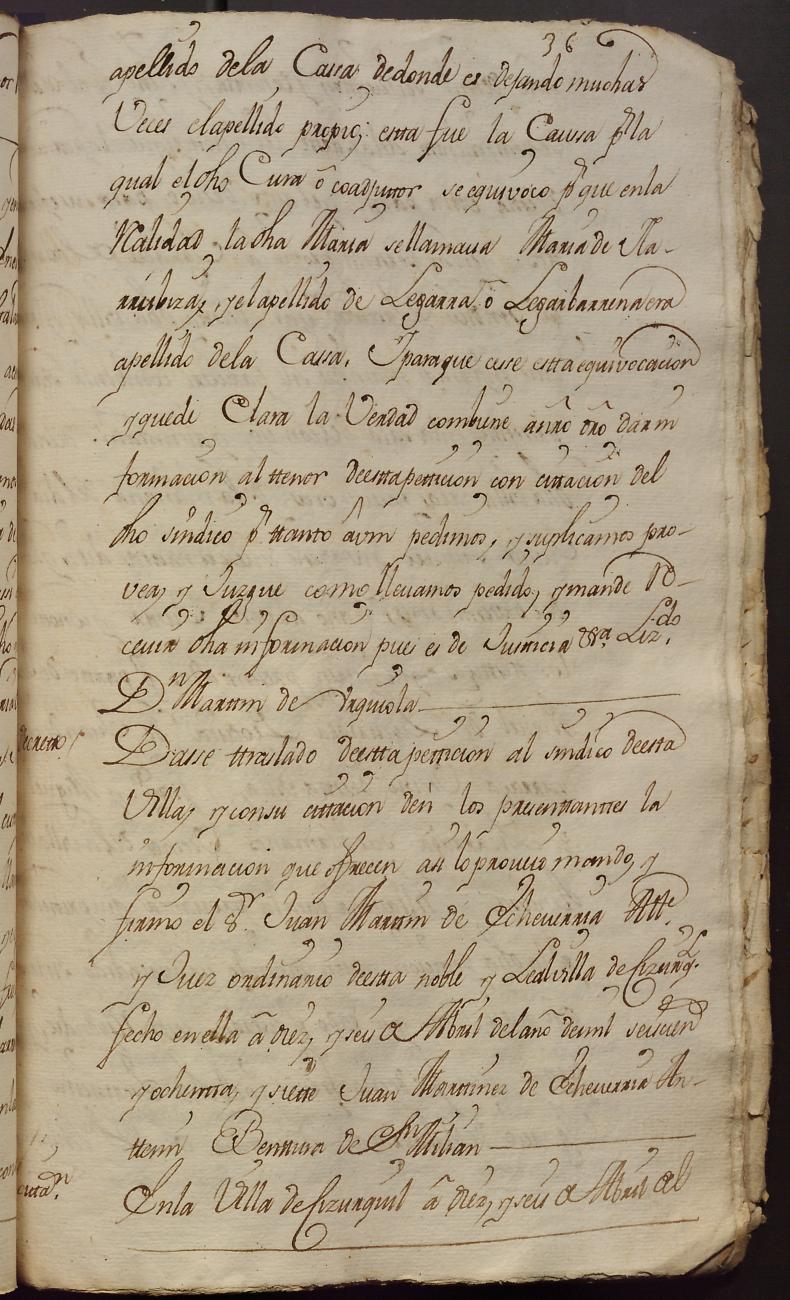 36
apellido dela Cassa dedonde es dejando muchas
Veces elapellido propio; estta fue la Caussa pr la
qual el dho Cura ô coadjuttor se equivoco pr que enla
Realidad la dha Maria sellamava Maria de Na-
rruibizaz, y elapellido de Legarra, ô Legaribarrena era
apellido dela Cassa, Y paraque cesse estta equivocacion
y quede Clara la Verdad combiene anro dro dar in
formacion al ttenor deesttapetticion con cittacion del
dho sindico pr ttanto âvm pedimos, y suplicamos pro-
vea, y Juzgue como llevamos pedido, y mande Re-
cevir dha informacion pues es de Justticia &a. Lizdo.
Dn Marttin de Urquiola
Decretto
Dasse ttraslado deesttapetticion al sindico deesta
Villa, y consu cittacion den los presenttanttes la
informacion que ofrecen asi lo proveio mando, y
firmo el Sr. Juan Marttin de Echeverria Alle
y Juez ordinario deesta noble y Leal villa de Cizurql.
fecho en ella â diez, y seis de Abril del año demil seiscien
y ochentta, y siette Juan Marttinez de Echeverria An-
ttemi Benttura de Sn Milian
cittan.
Enla Villa de Cizurquil â diez, y seis de Abril del